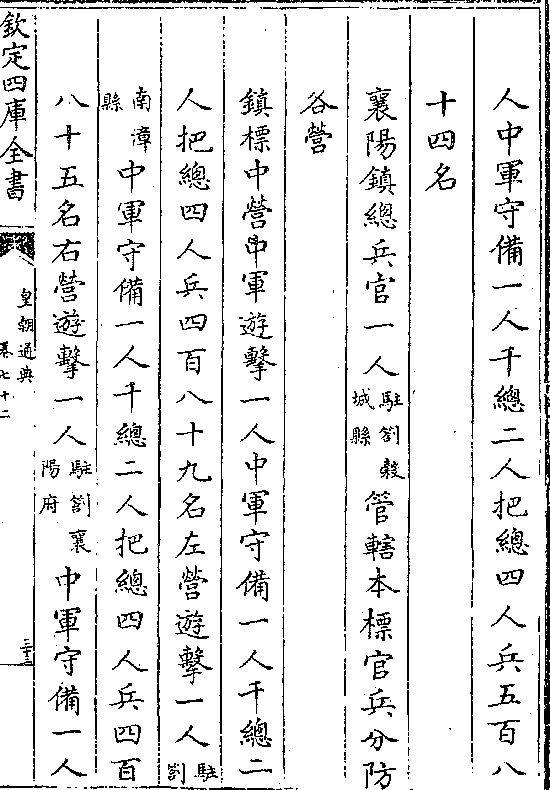 人中軍守備一人千總二人把總四人兵五百八
十四名
襄陽鎮總兵官一人駐劄穀城縣管轄本標官兵分防
各營
鎮標中營中軍遊擊一人中軍守備一人千總二
人把總四人兵四百八十九名左營遊擊一人駐劄
南漳縣中軍守備一人千總二人把總四人兵四百
八十五名右營遊擊一人駐劄襄陽府中軍守備一人
欽定四庫全書
皇朝通典
卷七十二